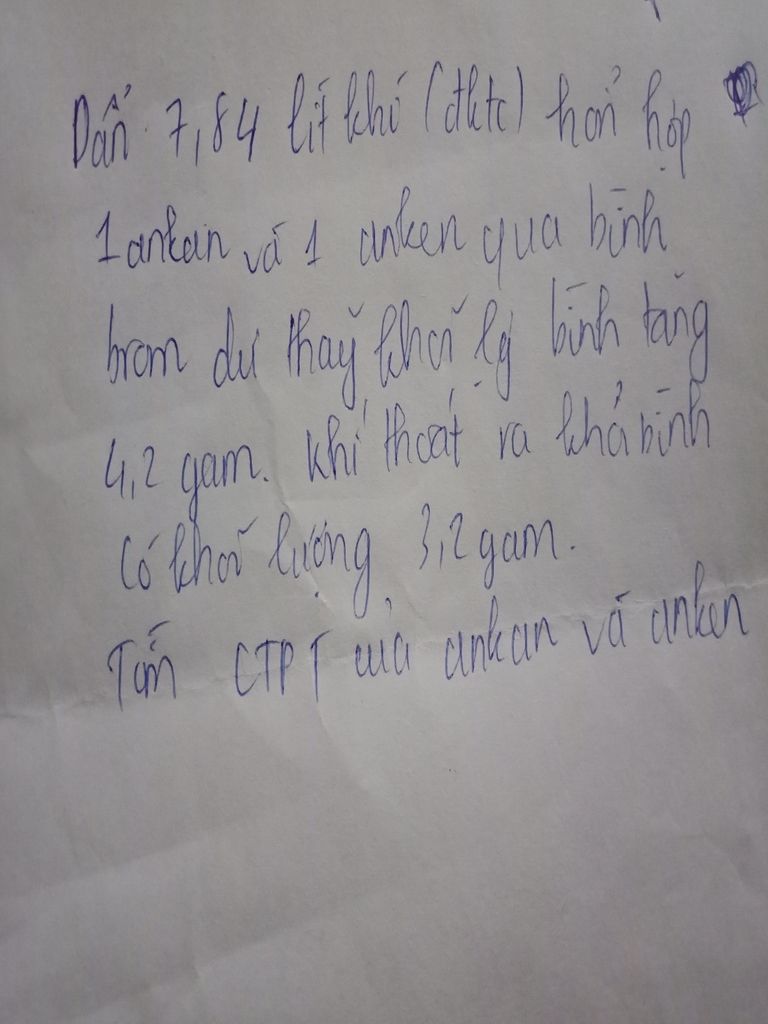 Dẩn 7,84 lít khí (đktc) hổn hợp
1 ankan và 1 anken qua bình
brom dư thấy khối lg bình tăng
4,2 gam. Khí thoát ra khỏi bình
có khối lượng 3,2 gam.
Tìm CTPT của ankan và anken